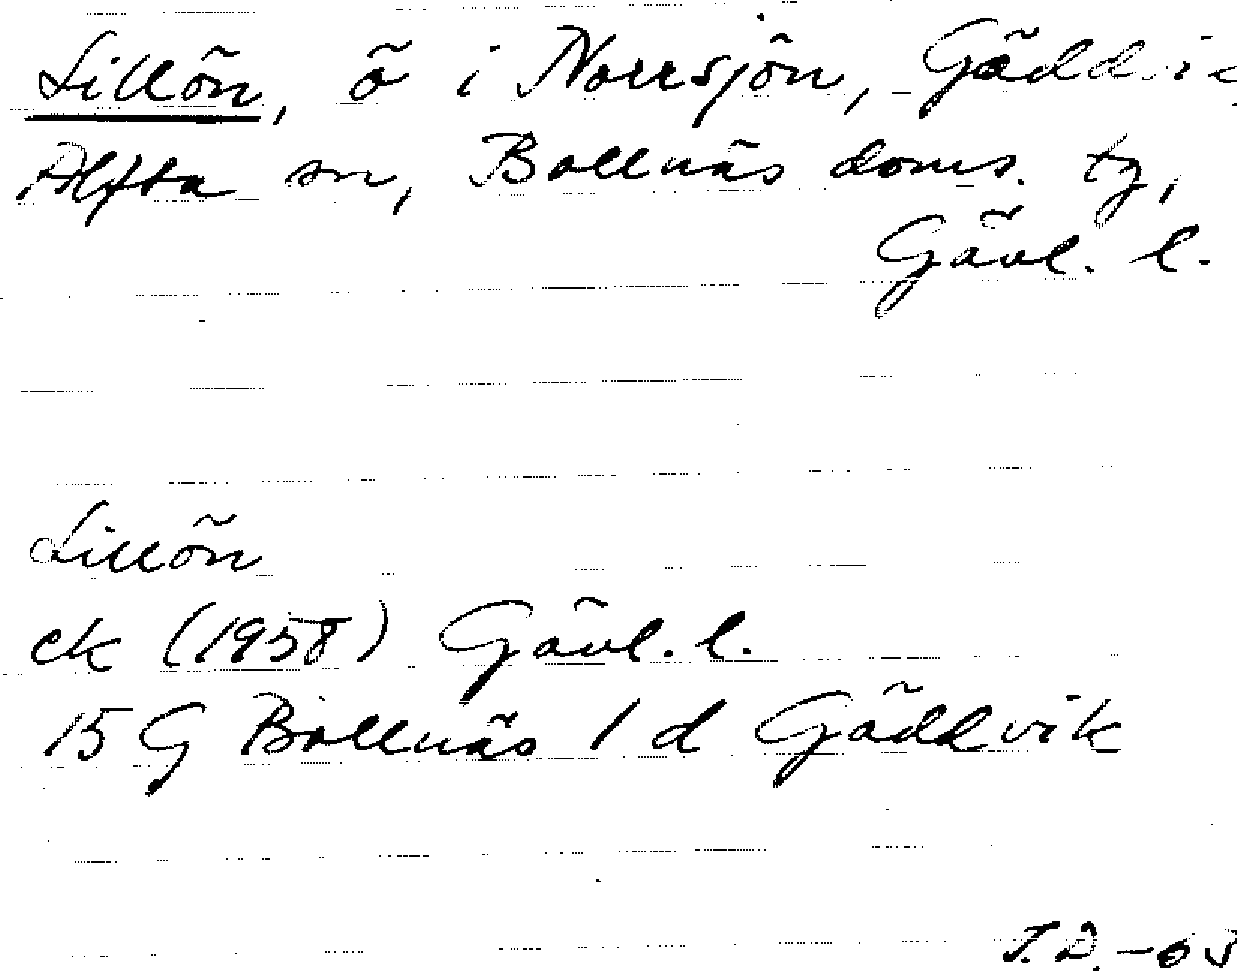 Lillön, ö i Norrsjön, Gäddvi
Alfta sn, Bollnäs doms. tg,
Gävl. l.
Lillön
ek (1958) Gävl. l.
15 G Bollnäs 1 d Gäddvik
J.D. -63